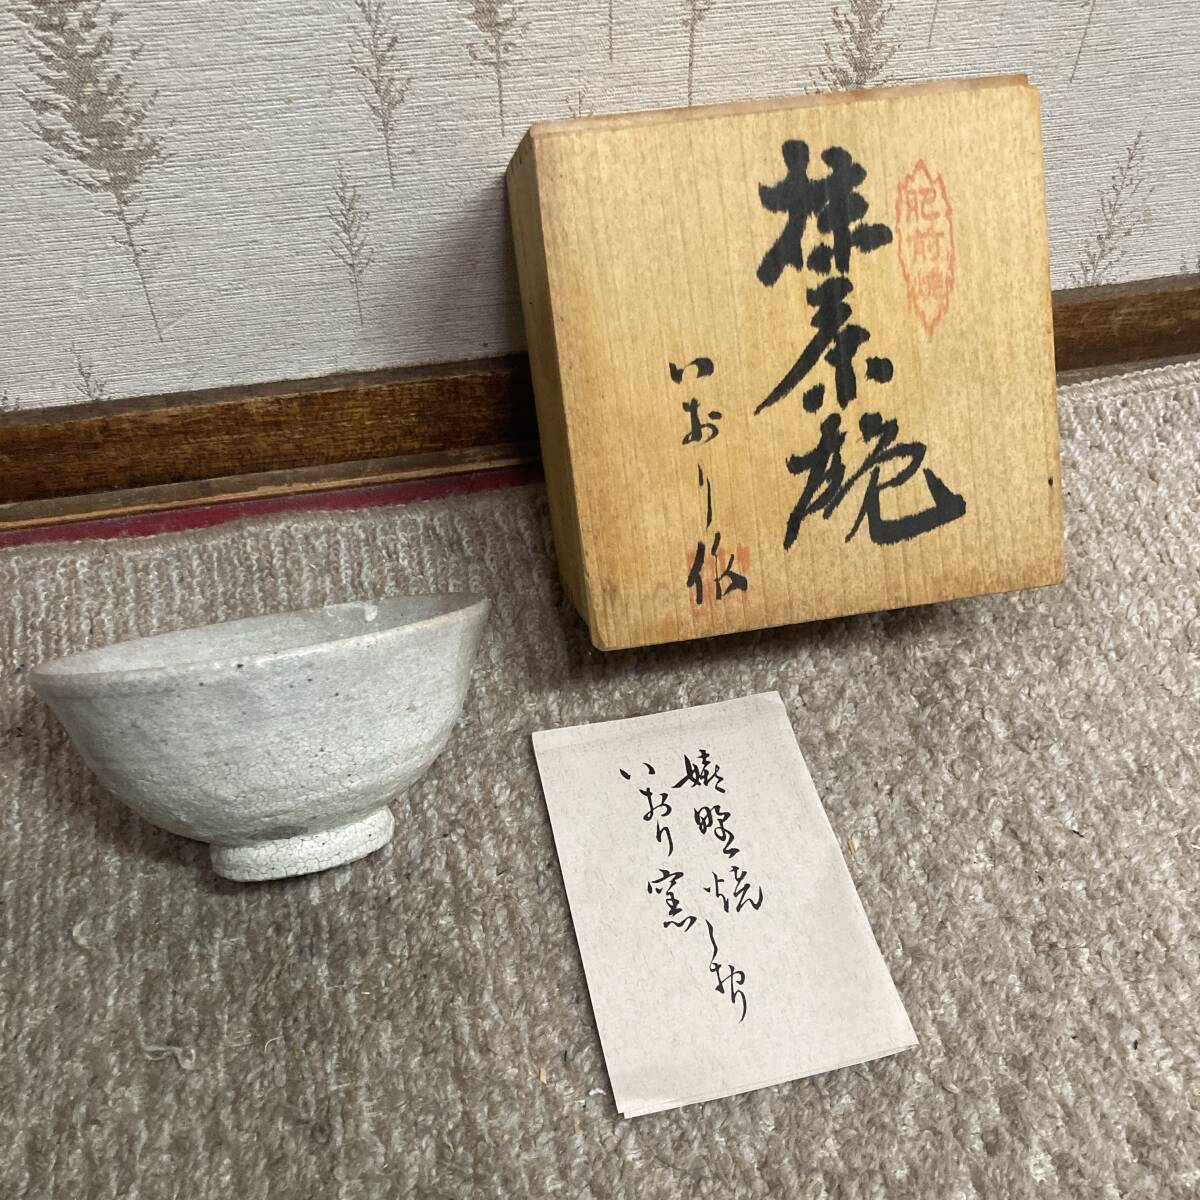 肥前焼
抹茶碗
いおり作
嬉野焼しおり
いおり窯